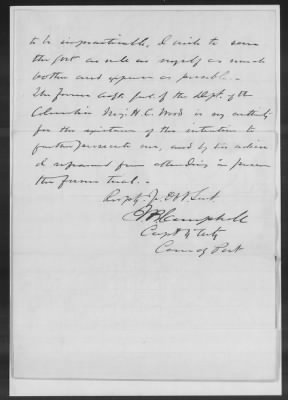 to be impracticable, I wish to save
the Govt as well as myself as much
bother and expense as possible.
The former Asst Genl of the Dept. of the
Columbia Maj. H. C. Wood is my authority
for the existence of the intention to
further prosecute me, and by his advice
I refrained from attending in person
the former trial.
Respty Yr Obt Sevt.
Campbell
Capt 4 Arty
Comdg Post